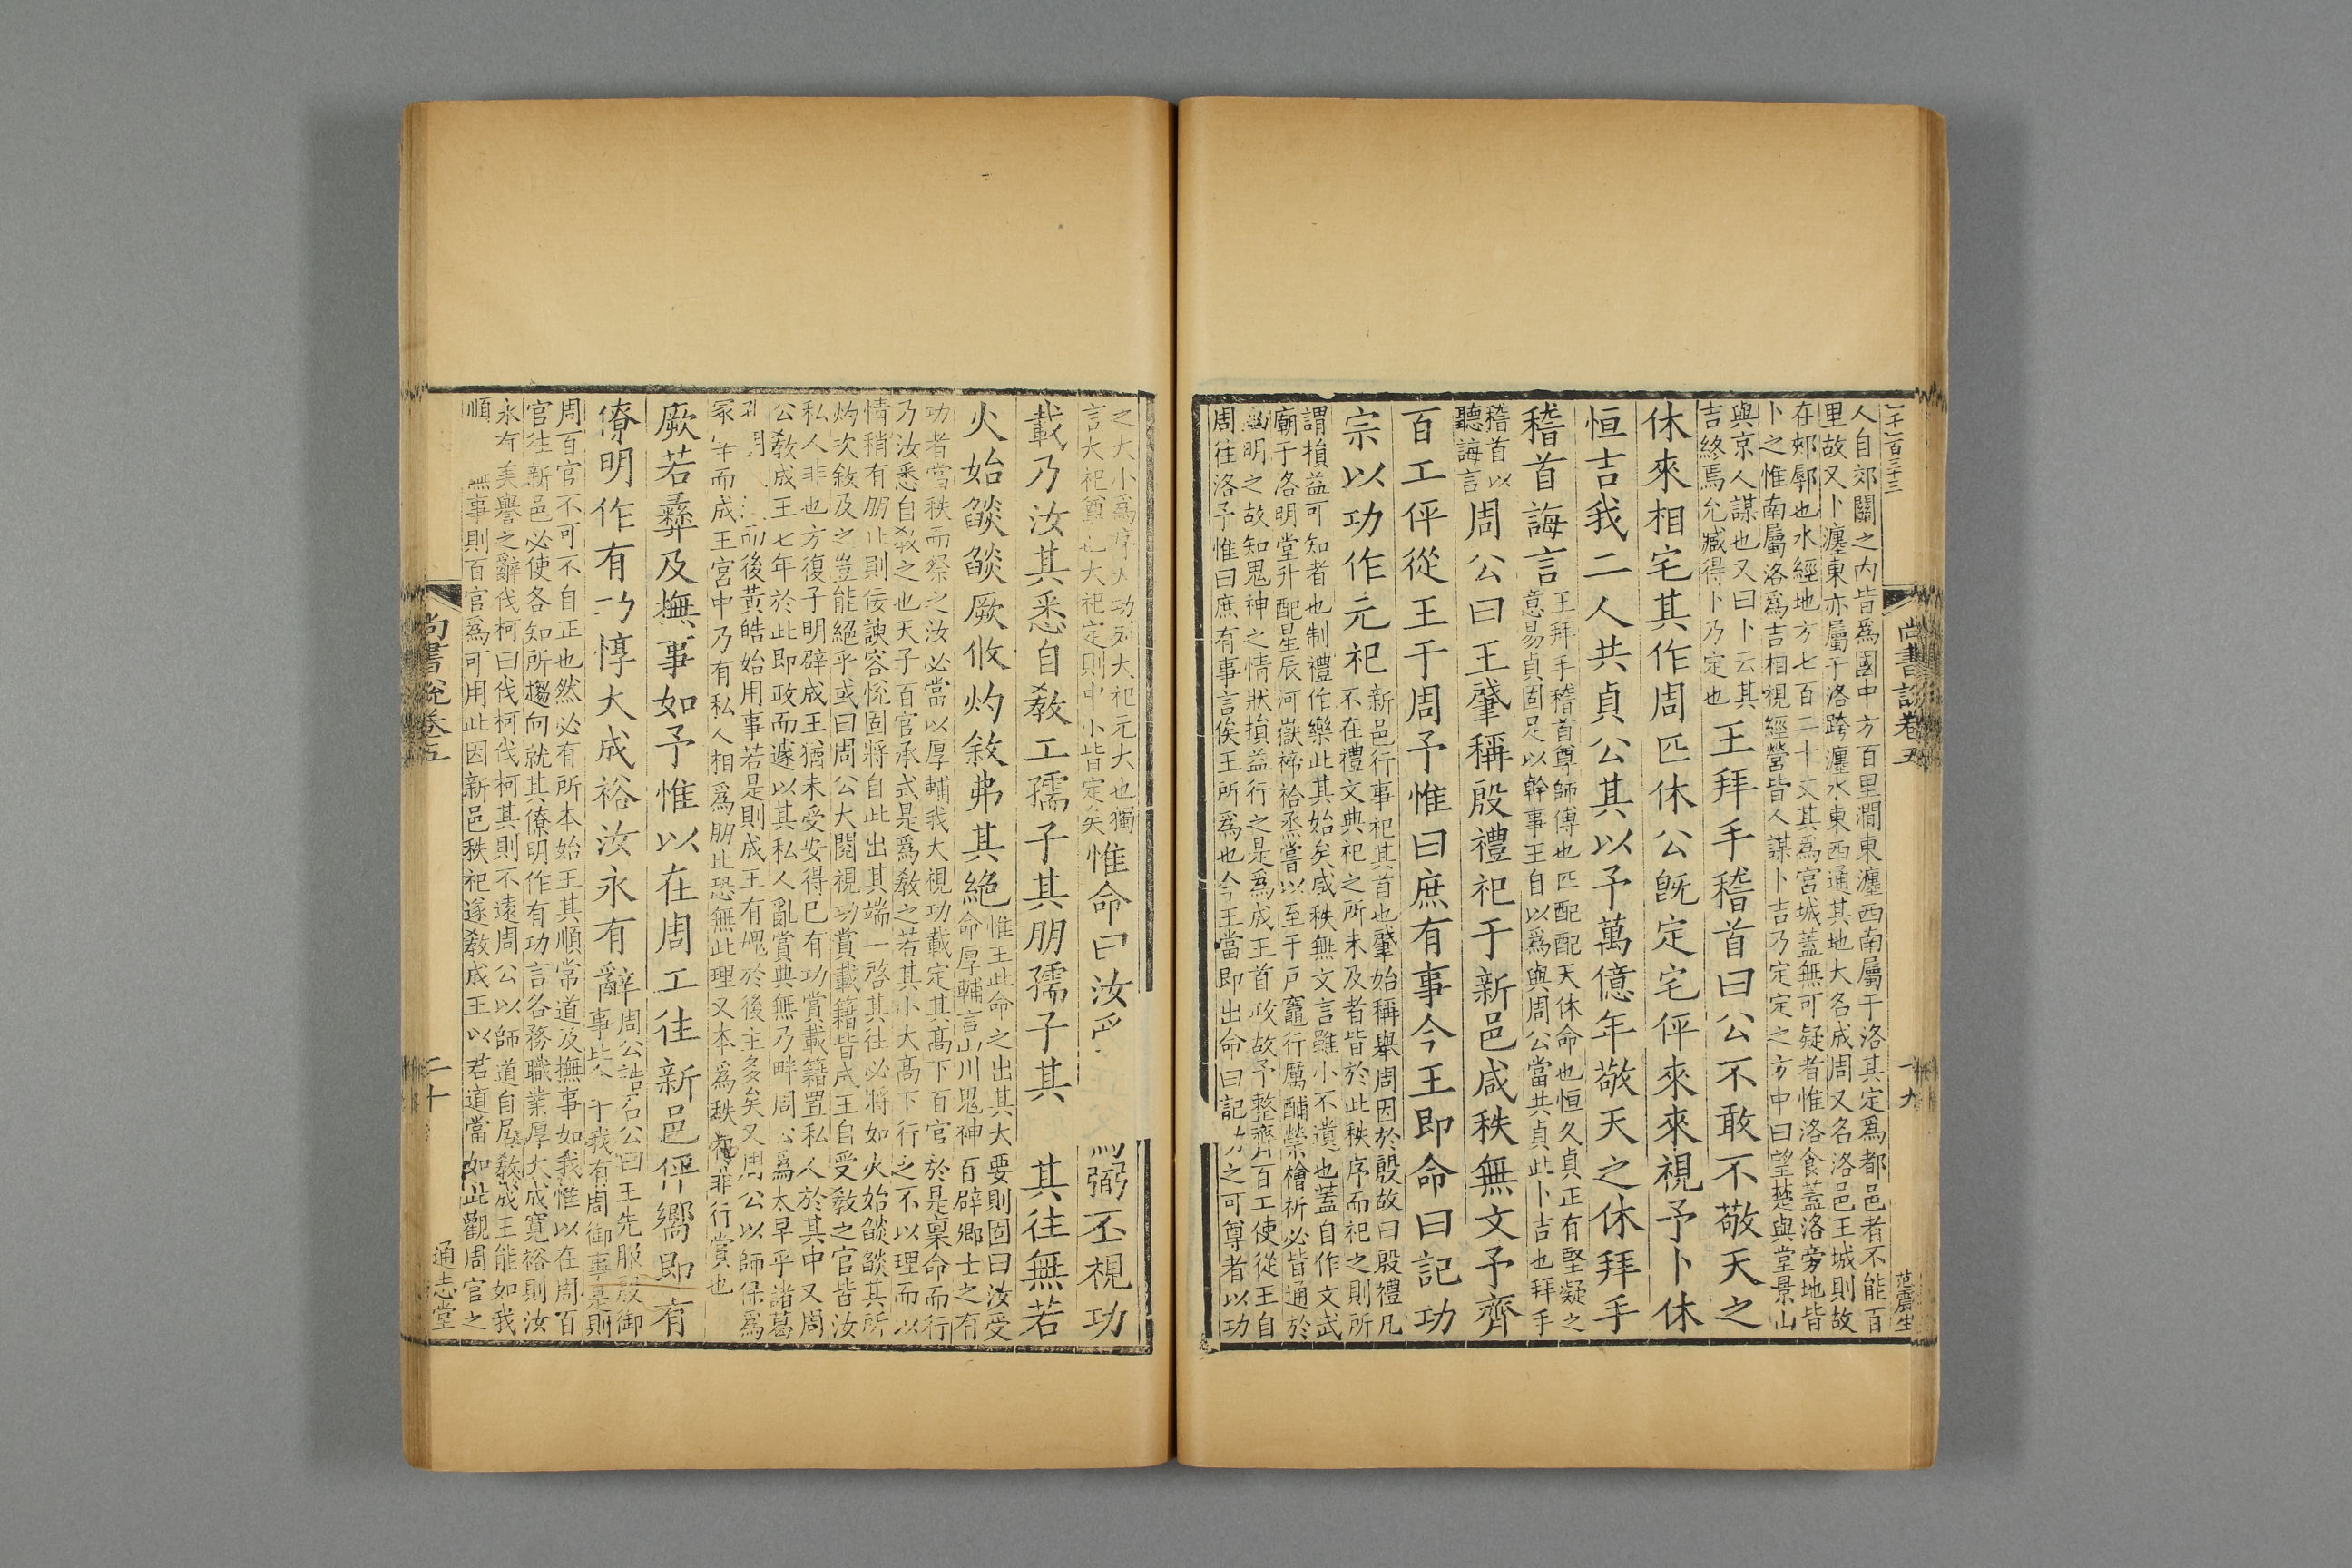 人自郊關之内皆爲國中方百里澗東瀍西南屬于洛其定爲都邑者不能百
里故又卜瀍東亦屬于洛跨瀍水東西通其地大名成周又名洛邑王城則故
在郟鄏也水經地方七百二十丈其爲宮城蓋無可疑者惟洛食蓋洛旁地皆
卜之惟南屬洛爲吉相視經營皆人謀卜吉乃定定之方中曰望楚與堂景山
與京人謀也又曰卜云其
吉終焉允臧得卜乃定也
王拜手稽首曰公不敢不敬天之
休來相宅其作周匹休公旣定宅伻來來視予卜休
恒吉我二人共貞公其以予萬億年敬天之休拜手
稽首誨言
王拜手稽首尊師傅也匹配配天休命也恒久貞正有堅凝之
意易貞固足以幹事王自以爲與周公當共貞此卜吉也拜手
稽首以
聽誨言
周公曰王肇稱殷禮祀于新邑咸秩無文予齊
百工伻從王于周予惟曰庶有事今王即命曰記功
宗以功作元祀
新邑行事祀其首也肇始稱舉周因於殷故曰殷禮凡
不在禮文典祀之所未及者皆於此秩序而祀之則所
謂損益可知者也制禮作樂此其始矣咸秩無文言雖小不遺也蓋自作文武
廟于洛明堂升配星辰河嶽禘祫烝嘗以至于戸竈行厲酺禜禬祈必皆通於
幽明之故知鬼神之情狀損益行之是爲成王首政故予整齊百工使從王自
周往洛予惟曰庶有事言俟王所爲也今王當即出命曰記功之可尊者以功
尚書說卷五
十九
之大小爲序大功列大祀元大也獨
言大祀尊也大祀定則中小皆定矣
惟命曰汝受
弼丕視功
載乃汝其悉自教工孺子其朋孺子其
其往無若
火始燄燄厥攸灼敘弗其絶
惟王此命之出其大要則固曰汝受
命厚輔言山川鬼神百辟卿士之有
功者當秩而祭之汝必當以厚輔我大視功載定其髙下百官於是稟命而行
乃汝悉自教之也天子百官承式是爲教之若其小大髙下行之不以理而以
情稍有朋比則佞諛容悅固將自此出其端一啓其往必將如火始燄燄其所
灼次敘及之豈能絕乎或曰周公大閱視功賞載籍皆成王自受教之官皆汝
私人非也方復子明辟成王猶未受安得已有功賞載籍置私人於其中又周
公教成王七年於此即政而遽以其私人亂賞典無乃畔周公爲太早乎諸葛
而後黃皓始用事若是則成王有媿於後主多矣又周公以師保爲
冢宰而成王宮中乃有私人相爲朋比恐無此理又本爲秩祀非行賞也
厥若彝及撫事如予惟以在周工往新邑伻嚮即有
僚明作有功惇大成裕汝永有辭
周公誥君公曰王先服殷御
事比介于我有周御事是則
周百官不可不自正也然必有所本始王其順常道及撫事如我惟以在周百
官往新邑必使各知所趨向就其僚明作有功言各務職業厚大成寬裕則汝
永有美譽之辭伐柯曰伐柯伐柯其則不遠周公以師道自居教成王能如我
順
無事則百官爲可用此因新邑秩祀遂教成王以君道當如此觀周官之
尚書說卷五
二十
通志堂